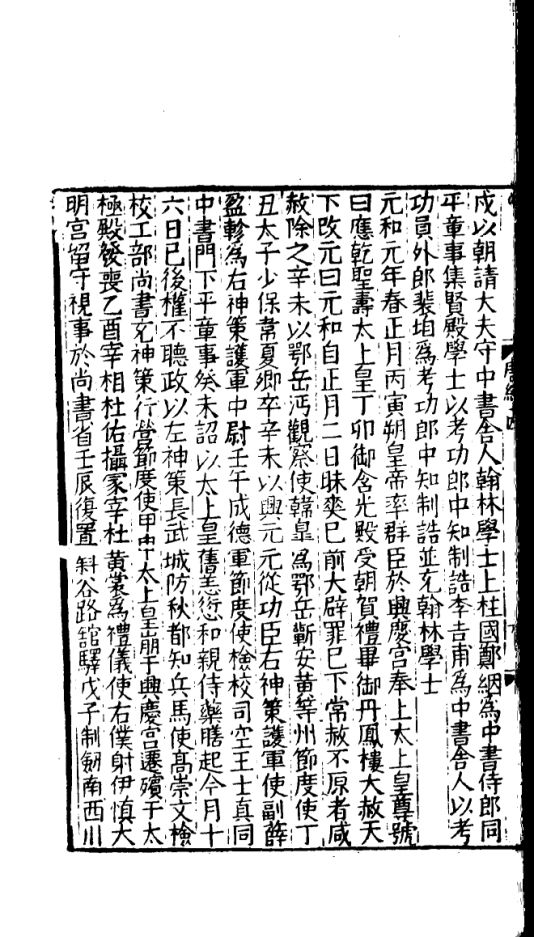 戍以朝請大夫守中書舍人翰林學士上柱國鄭絪為中書侍郎同
平章事集賢殿學士以考功郎中知制誥李吉甫為中書舍人以考
功員外郎裴垍為考功郎中知制誥並充翰林學士
元和元年春正月丙寅朔皇帝率群臣於興慶宮奉上太上皇尊號
曰應乾聖壽太上皇丁卯御含光殿受朝賀禮畢御丹鳳樓大赦天
下改元曰元和自正月二日昧爽已前大辟罪已下常赦不原者咸
赦除之辛未以鄂岳沔觀察使韓皐為鄂岳蘄安黃等州節度使丁
丑太子少保韋夏卿卒辛未以興元元從功臣右神策護軍使副薛
盈軫為右神策護軍中尉壬午成德軍節度使檢校司空王士真同
中書門下平章事癸未詔以太上皇舊恙愆和親侍藥膳起今月十
六日已後權不聽政以左神策長武城防秋都知兵馬使高崇文檢
校工部尚書充神策行營節度使甲申太上皇崩于興慶宮遷殯于太
極殿發喪乙酉宰相杜佑攝冢宰杜黃裳為禮儀使右僕射伊慎大
明宮留守視事於尚書省壬辰復置斜谷路舘驛戊子制劒南西川